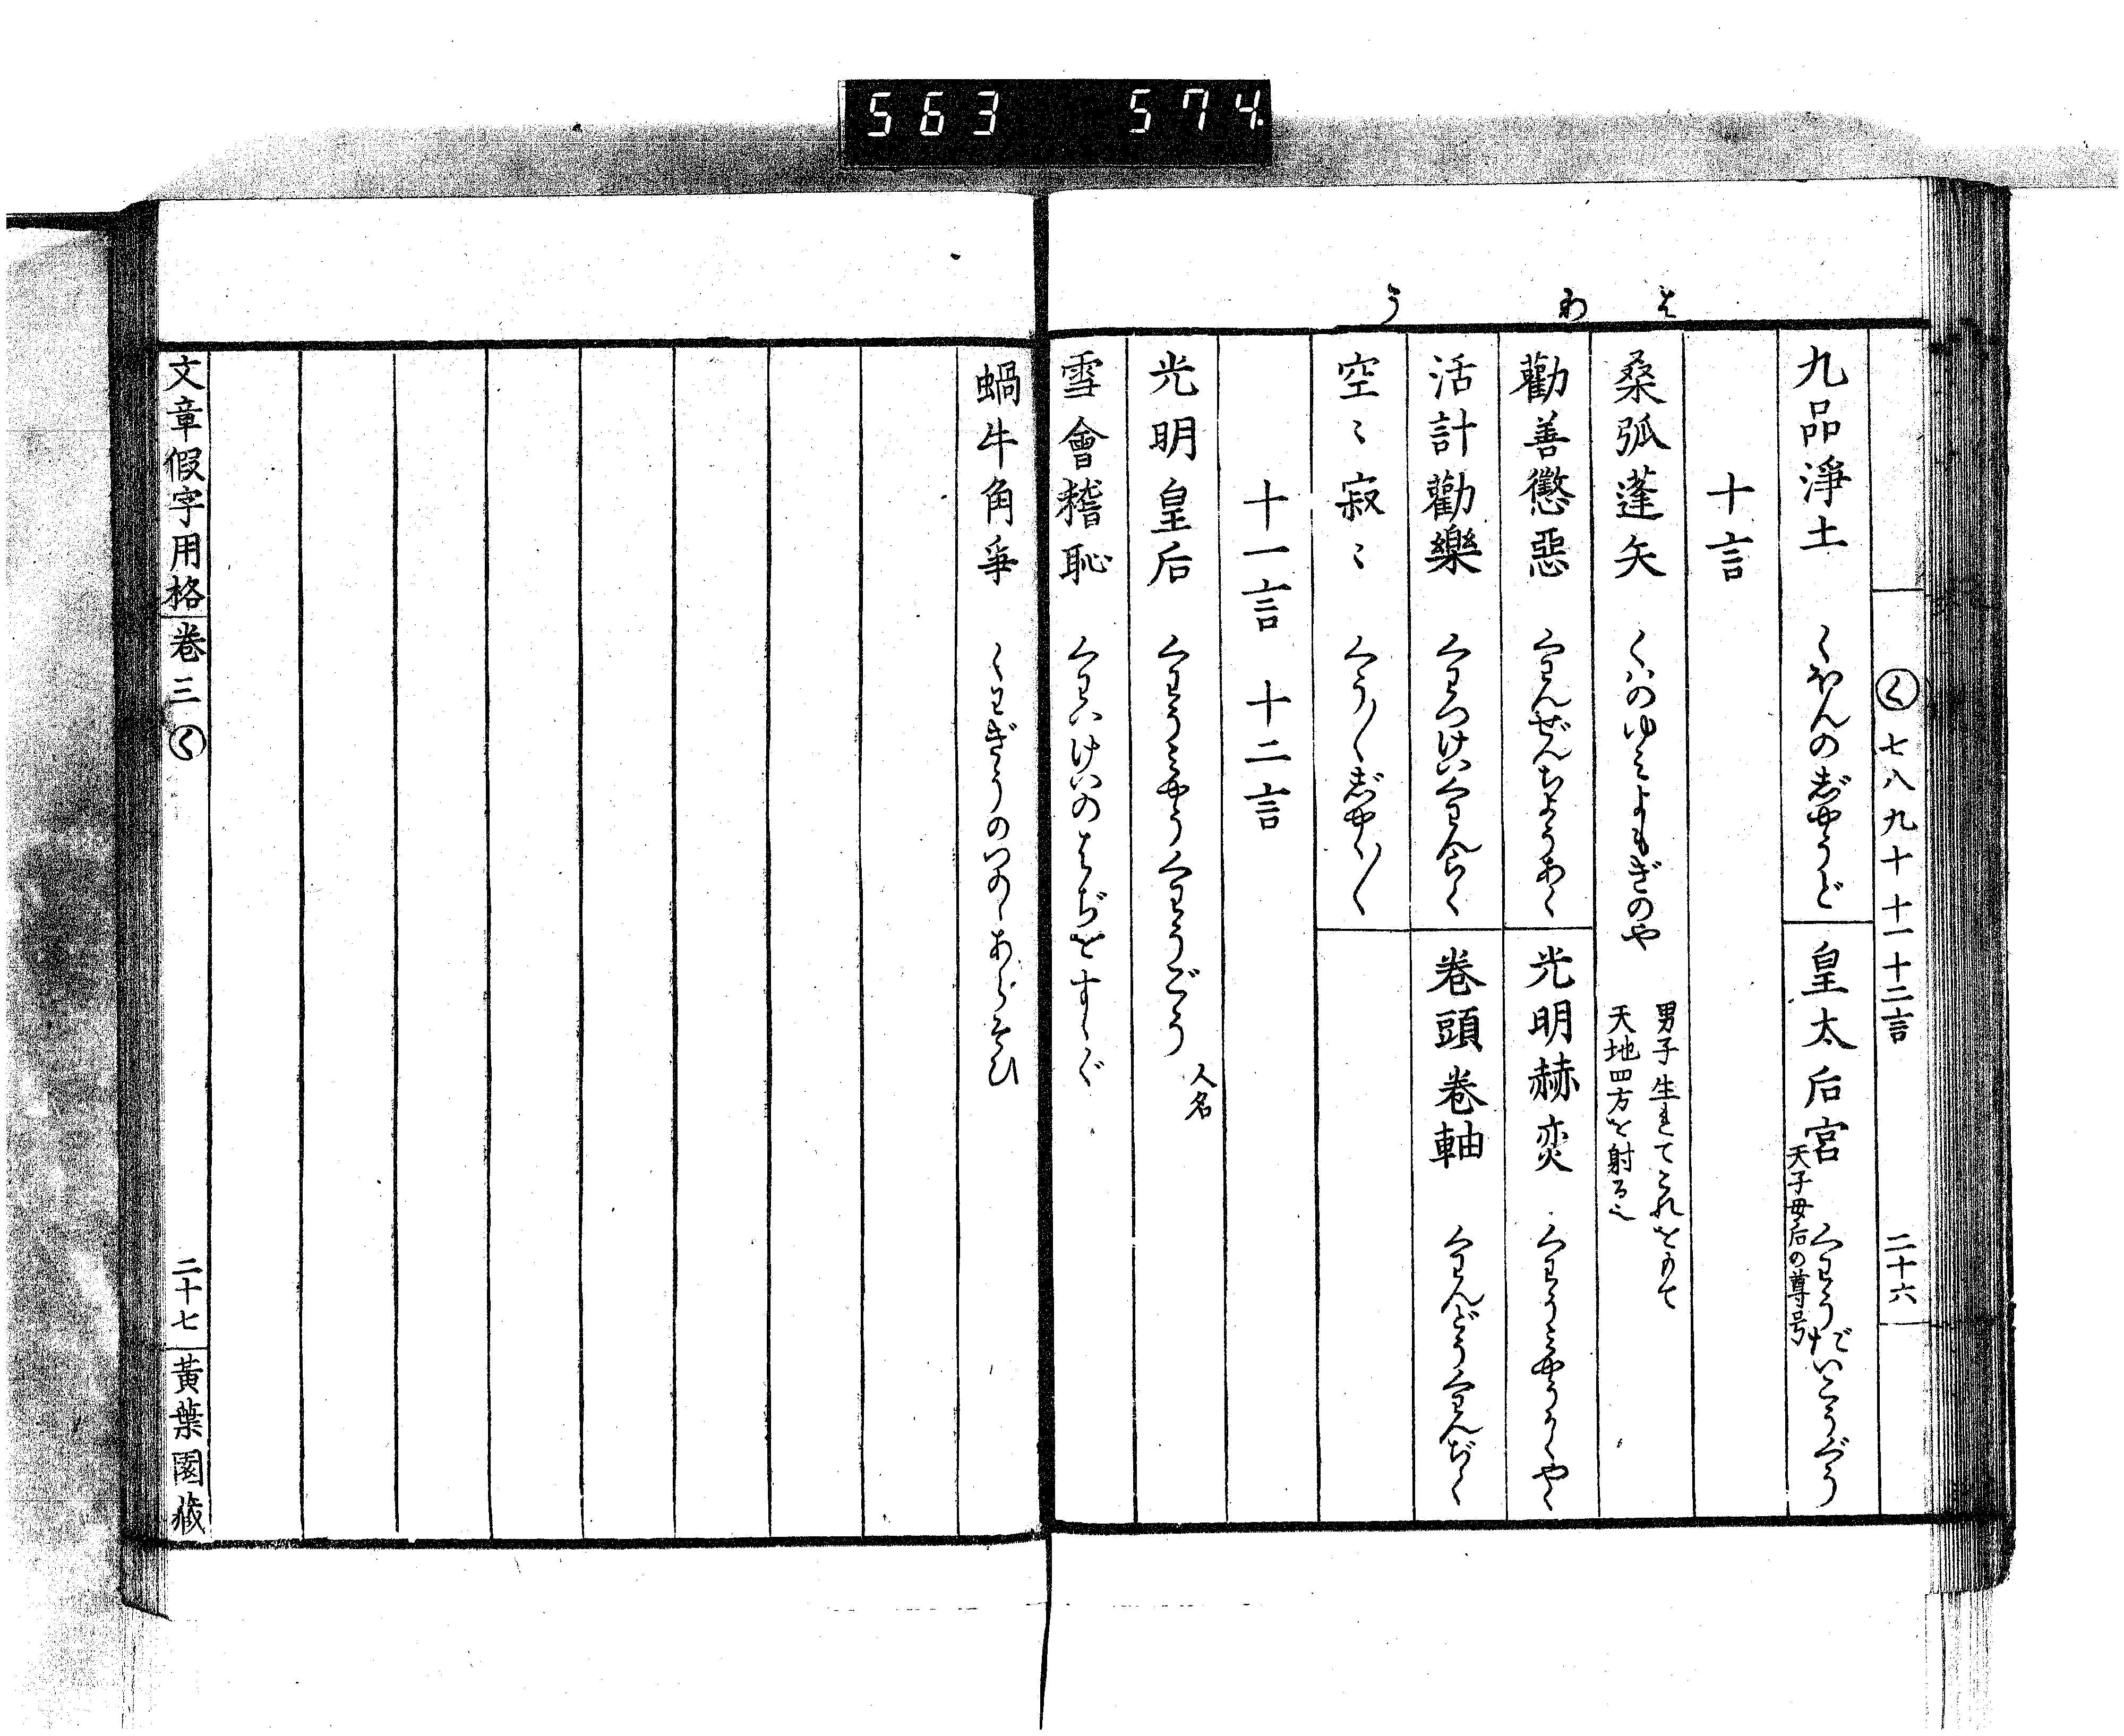 563 574.
く 七八九十十一十二言 二十六
九品淨土 くほんのじやうど
皇太后宮 くわうだいこうぐう 天子母后の尊号
十言
は
桑弧蓬矢 くはのゆみよもぎのや 男子生れてこれをもて
天地四方を射る也
わ
勸善懲惡 くわんぜんちようあく
光明赫奕 くわうみやうかくやく
活計勸樂 くわつけいくわんらく
卷頭卷軸 くわんどうくわんぢく
う
空〻寂〻 くう〳〵じやく〳〵
十一言 十二言
光明皇后 くわうみやうくわうごう 人名
雪會稽恥 くわいけいのはぢをすゝぐ
蝸牛角爭 くわぎうのつのゝあらそひ
文章假字用格 卷三 く 二十七 黃葉園藏